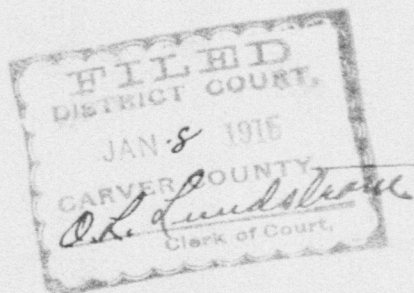 FILED
DISTRICT COURT,
JAN 8 1916
CARVER COUNTY
O.L. Lundstrom
Clerk of Court.